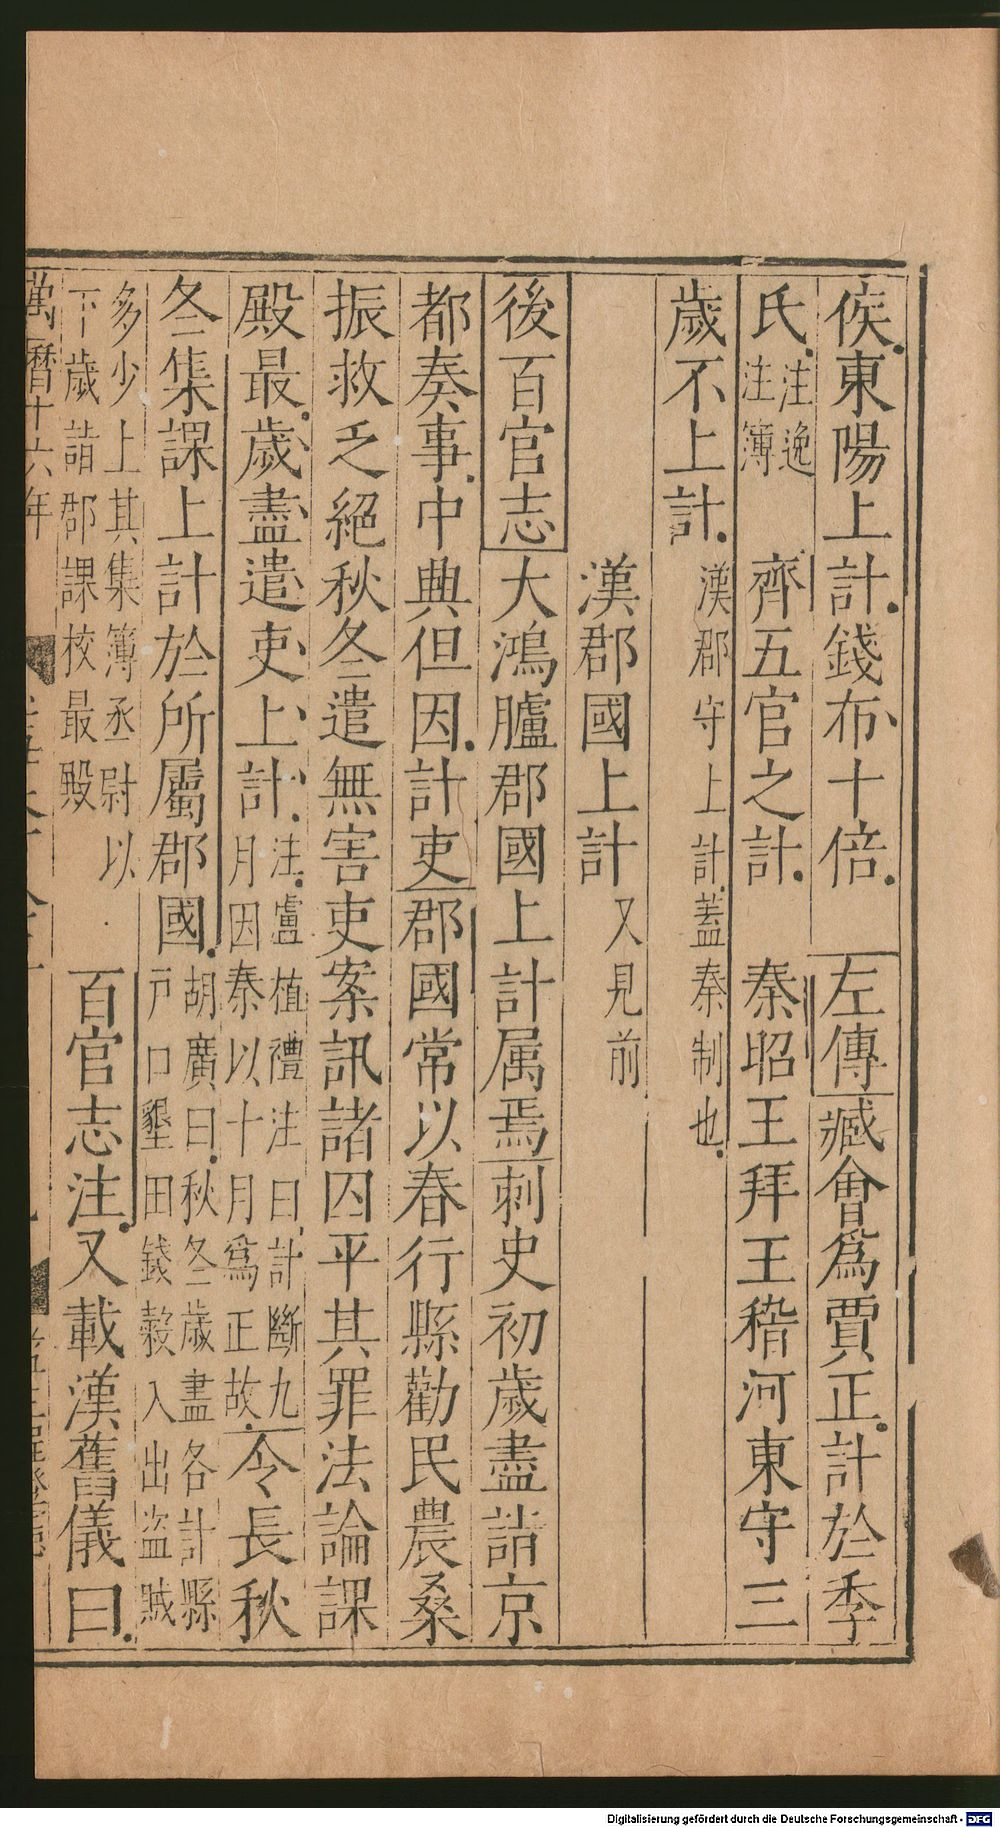 侯東陽上計錢布十倍 左傳臧會為賈正計於季
氏注逸注簿 齊五官之計 秦昭王拜王稽河東守三
歲不上計漢郡守上計蓋秦制也
漢郡國上計又見前
後百官志大鴻臚郡國上計属焉刺史初歲盡詣京
都奏事中典但因計吏郡國常以春行縣勸民農桑
振救乏絕秋冬遣無害吏案訊諸囚平其罪法論課
殿最歲盡遣吏上計注盧植禮注曰計斷九月因秦以十月為正故令長秋
冬集課上計於所屬郡國胡廣曰秋冬歲盡各計縣戶口墾田錢穀入出盜賊
多少上其集簿丞尉以下歲詣郡課校最殿 百官志注又載漢舊儀曰
萬曆十六年
Digitalisierung gefördert durch die Deutsche Forschungsgemeinschaft - DFG